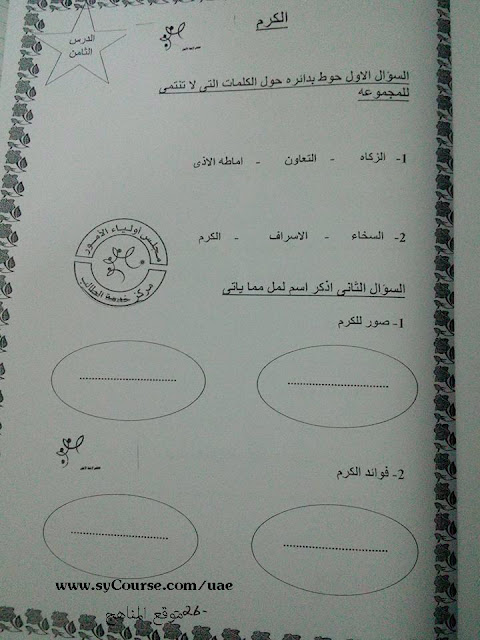 الكرم
الدرس
الثامن
السؤال الاول حوط بدائره حول الكلمات التى لا تنتمى
للمجموعه
1- الزكاه - التعاون - اماطه الاذى
2- السخاء - الاسراف - الكرم
مجلس أولياء الأمور
مركز خدمة الطالب
السؤال الثانى اذكر اسم لمل مما ياتى
1- صور للكرم
2- فوائد الكرم
www.syCourse.com/uae
-26-
موقع المناهج